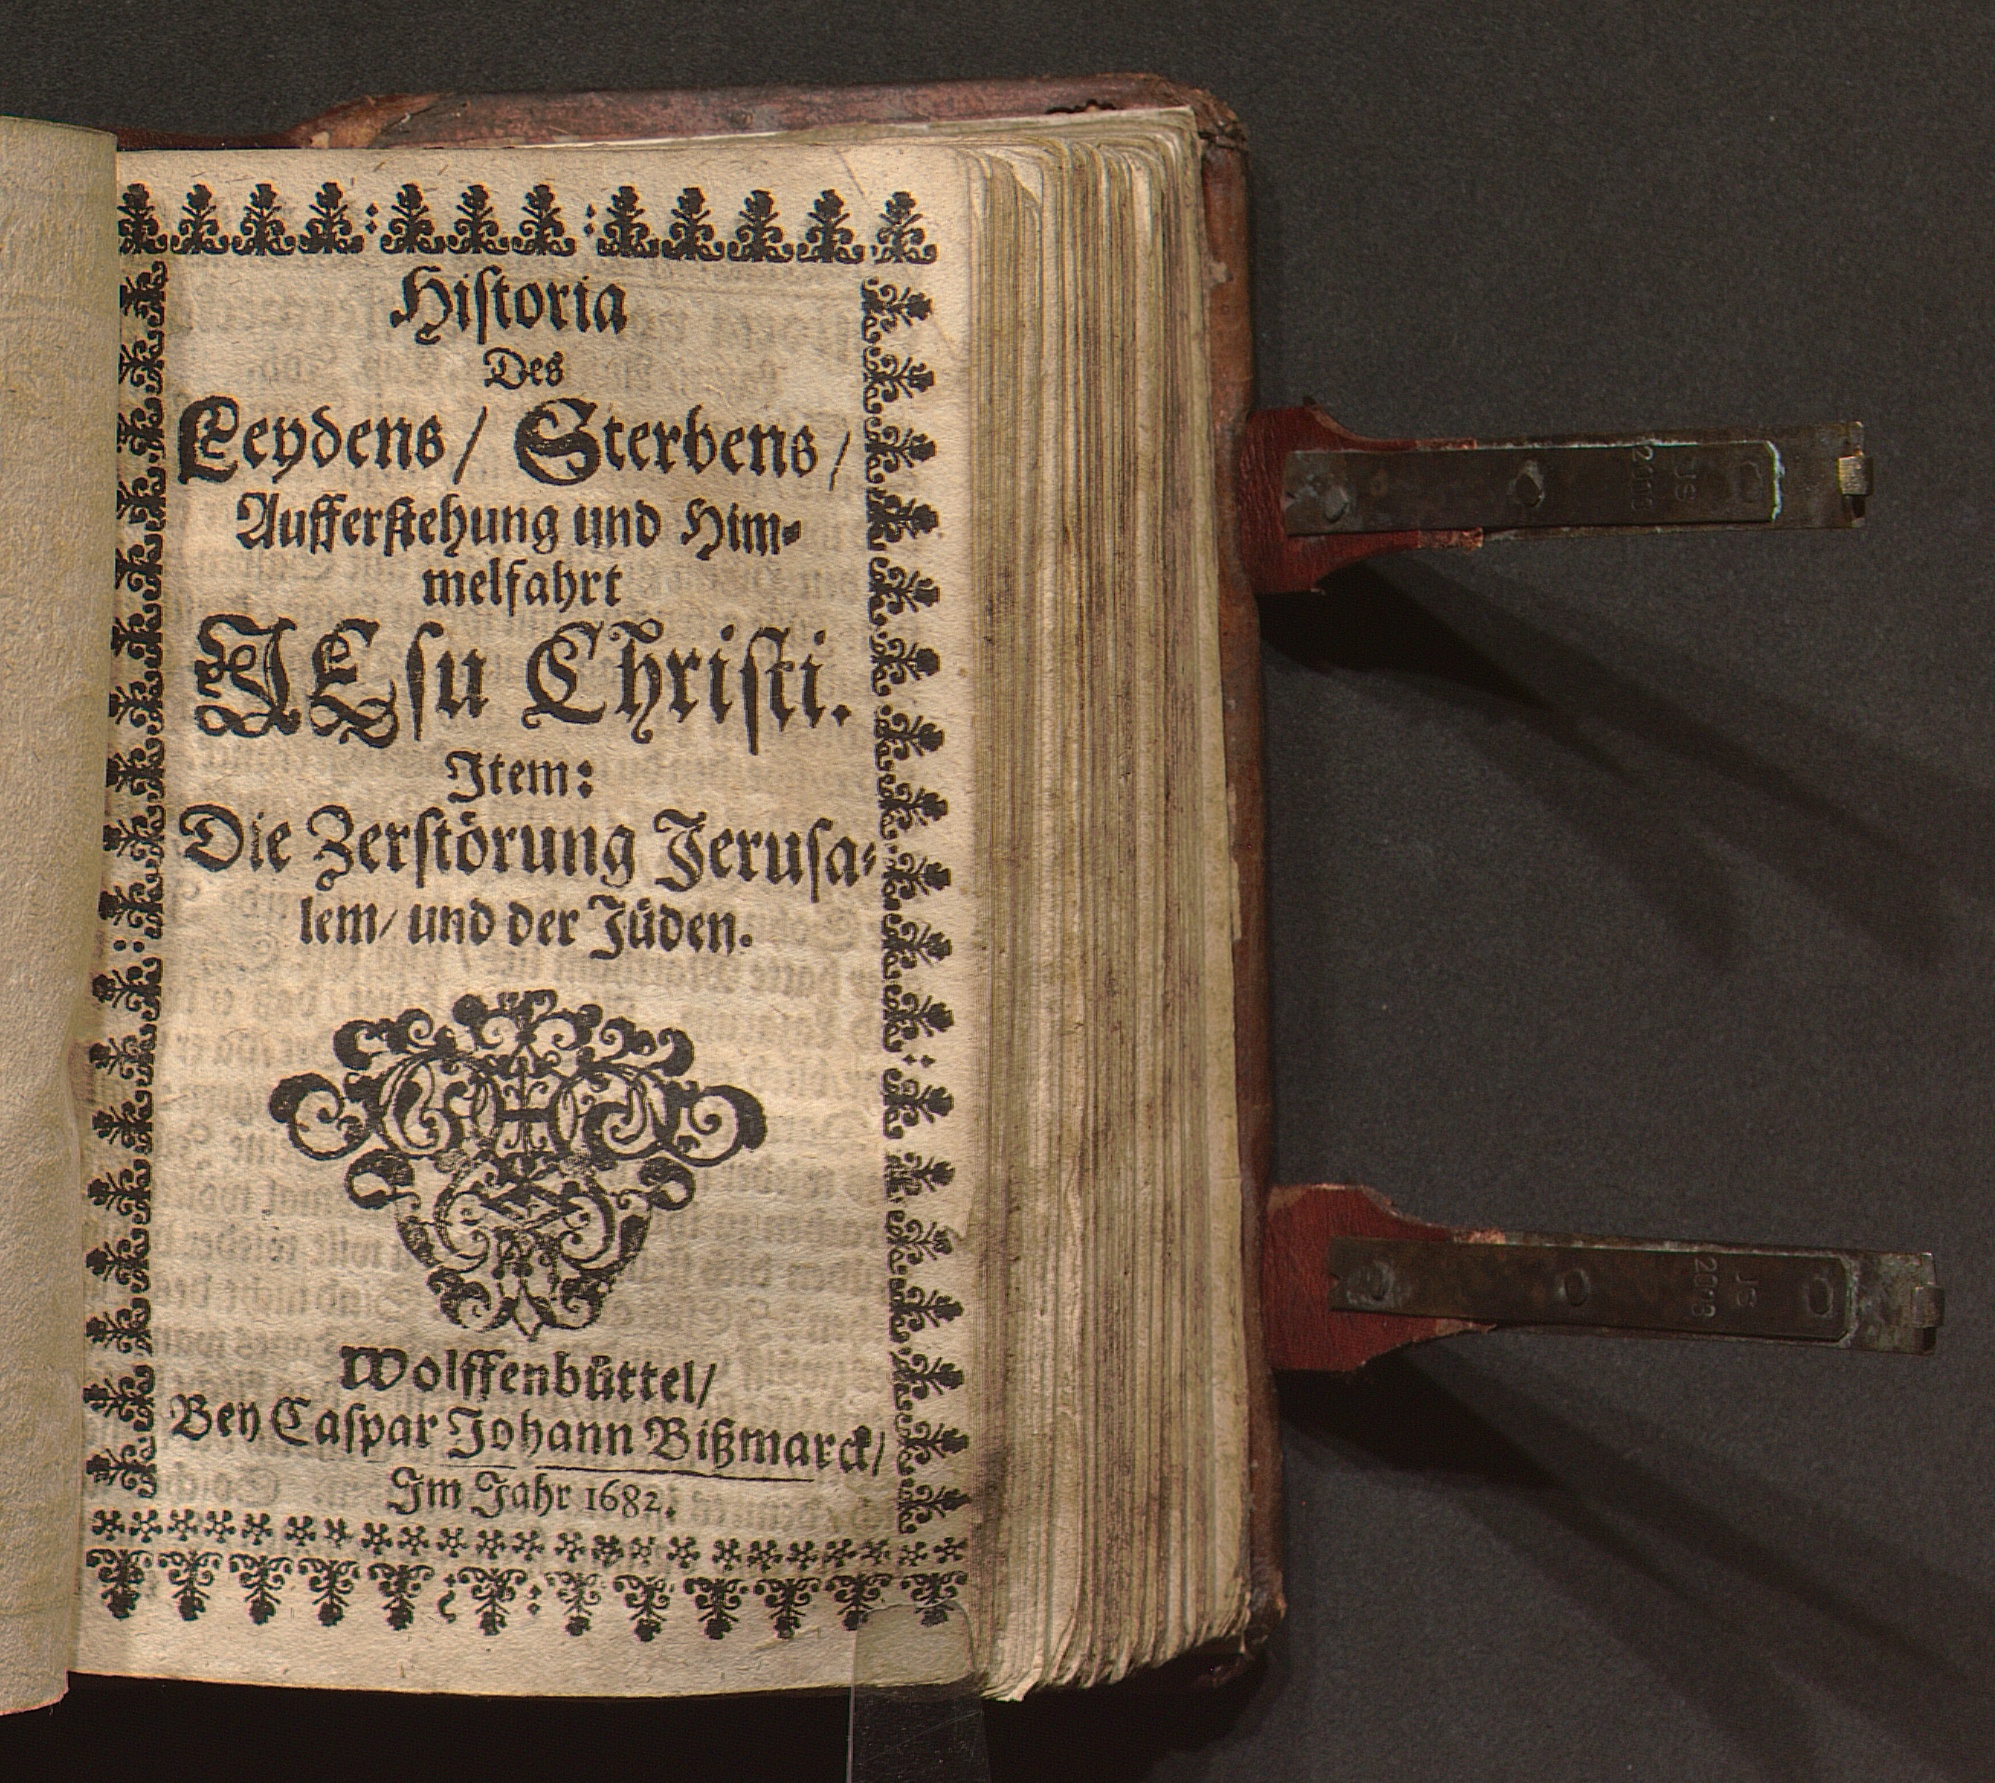 Historia
Des
Leydens / Sterbens /
Aufferstehung und Him⸗
melfahrt
JEsu Christi.
Item:
Die Zerstörung Jerusa⸗
lem / und der Jüden.
Wolffenbüttel /
Bey Caspar Johann Bißmarck /
Im Jahr 1682.
JS
2013
JS
2013